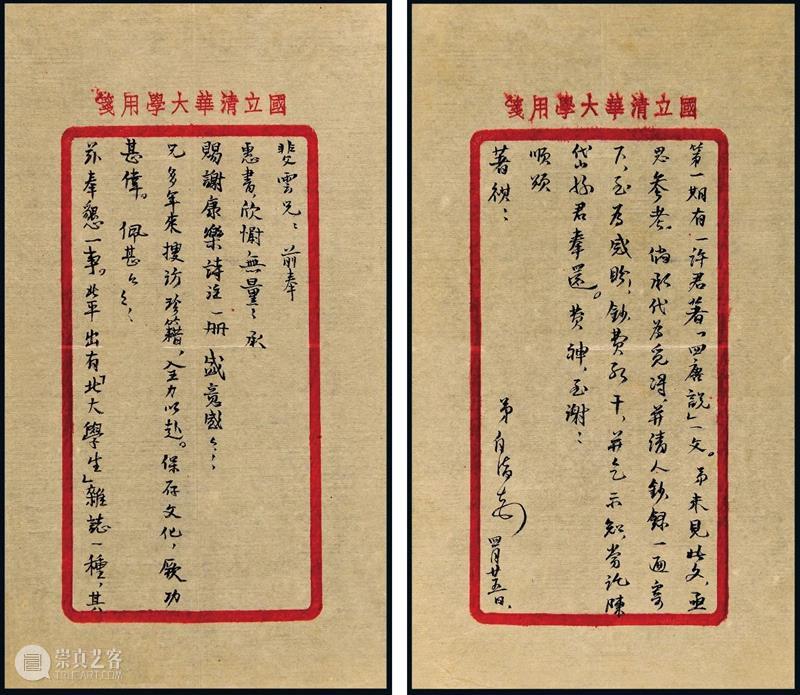 國立清華大學用箋
斐雲兄:前奉
惠書,欣慰無量;承
賜謝康樂詩注一册 盛意感々;
兄多年來搜訪珍籍,全力以赴。保存文化,厥功
甚偉。佩甚々々;
茲奉懇一事。北平出有「北大學生」雜誌一種,其
國立清華大學用箋
第一期有一許君著「四唐說」一文。弟未見此文,亟
思參考,倘承代為覓得,并請人鈔錄一通寄
下,至為感盼;鈔費若干,并乞示知,當託陳
岱孫君奉還。費神,至謝;
順頌
著祺;
弟自清 四月廿五日.
崇真艺客